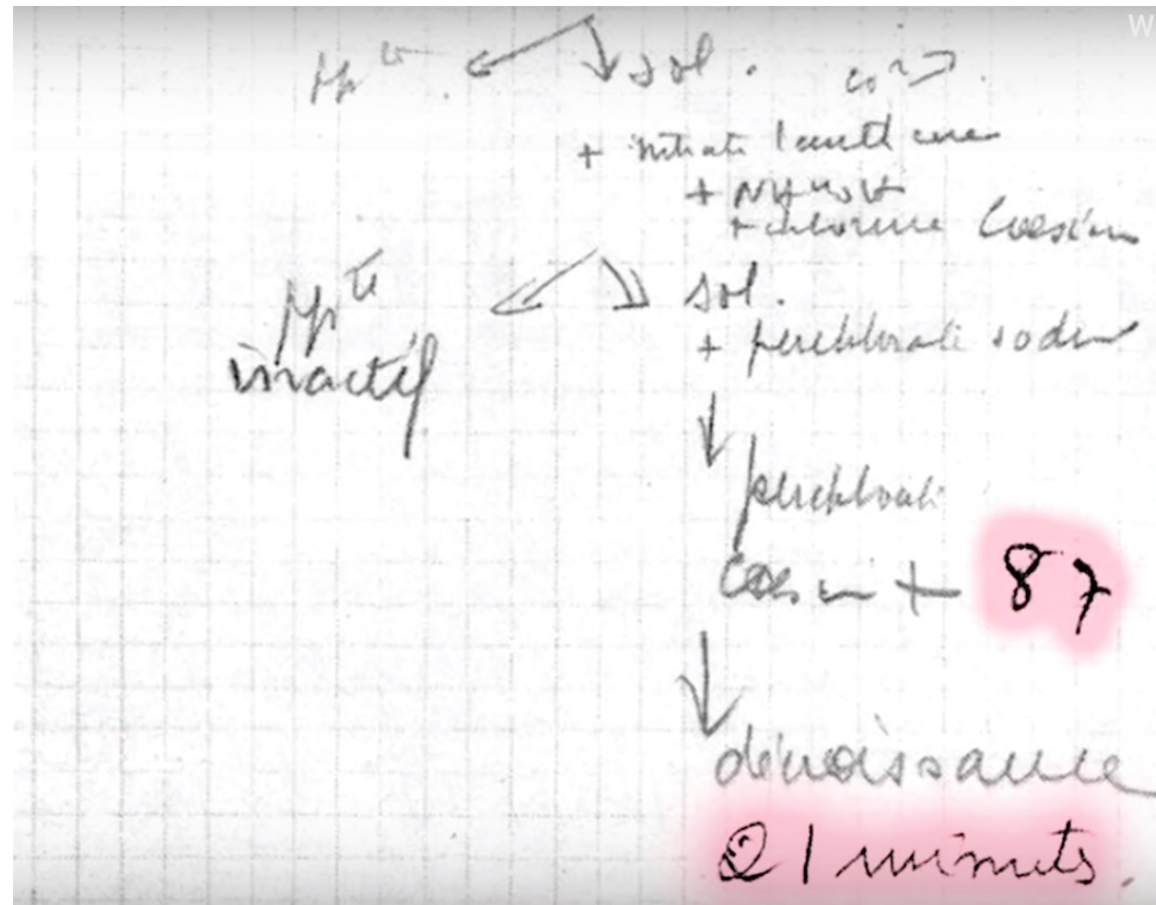 W
ppté sol.
+ nitrate lanthane
+ NH4OH
+ chlorure Caesium
ppté sol.
inactif + perchlorate sodium
perchlorate
Caesium + 87
décroissance
21 minutes.